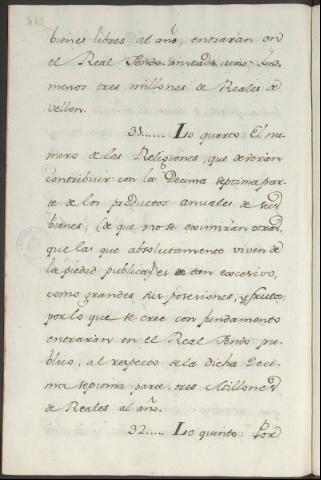 bienes libres, al año, entrarán en
el Real Fondo en cada uno lo
menos tres millones de Reales de
vellon.
31...... Lo quarto: El nu-
mero de las Religiones, que deverán
contribuir con la Decima septima par-
te de los productos anuales de sus
bienes, (de que no se eximirán otras,
que las que absolutamente viven de
la piedad publica) es tan excesivo,
como grandes sus posesiones, y frutos,
por lo que se cree con fundamento
entrarán en el Real Fondo pu-
blico, al respecto de la dicha Deci-
ma septima parte tres Millones
de Reales al año.
32..... Lo quinto: Por